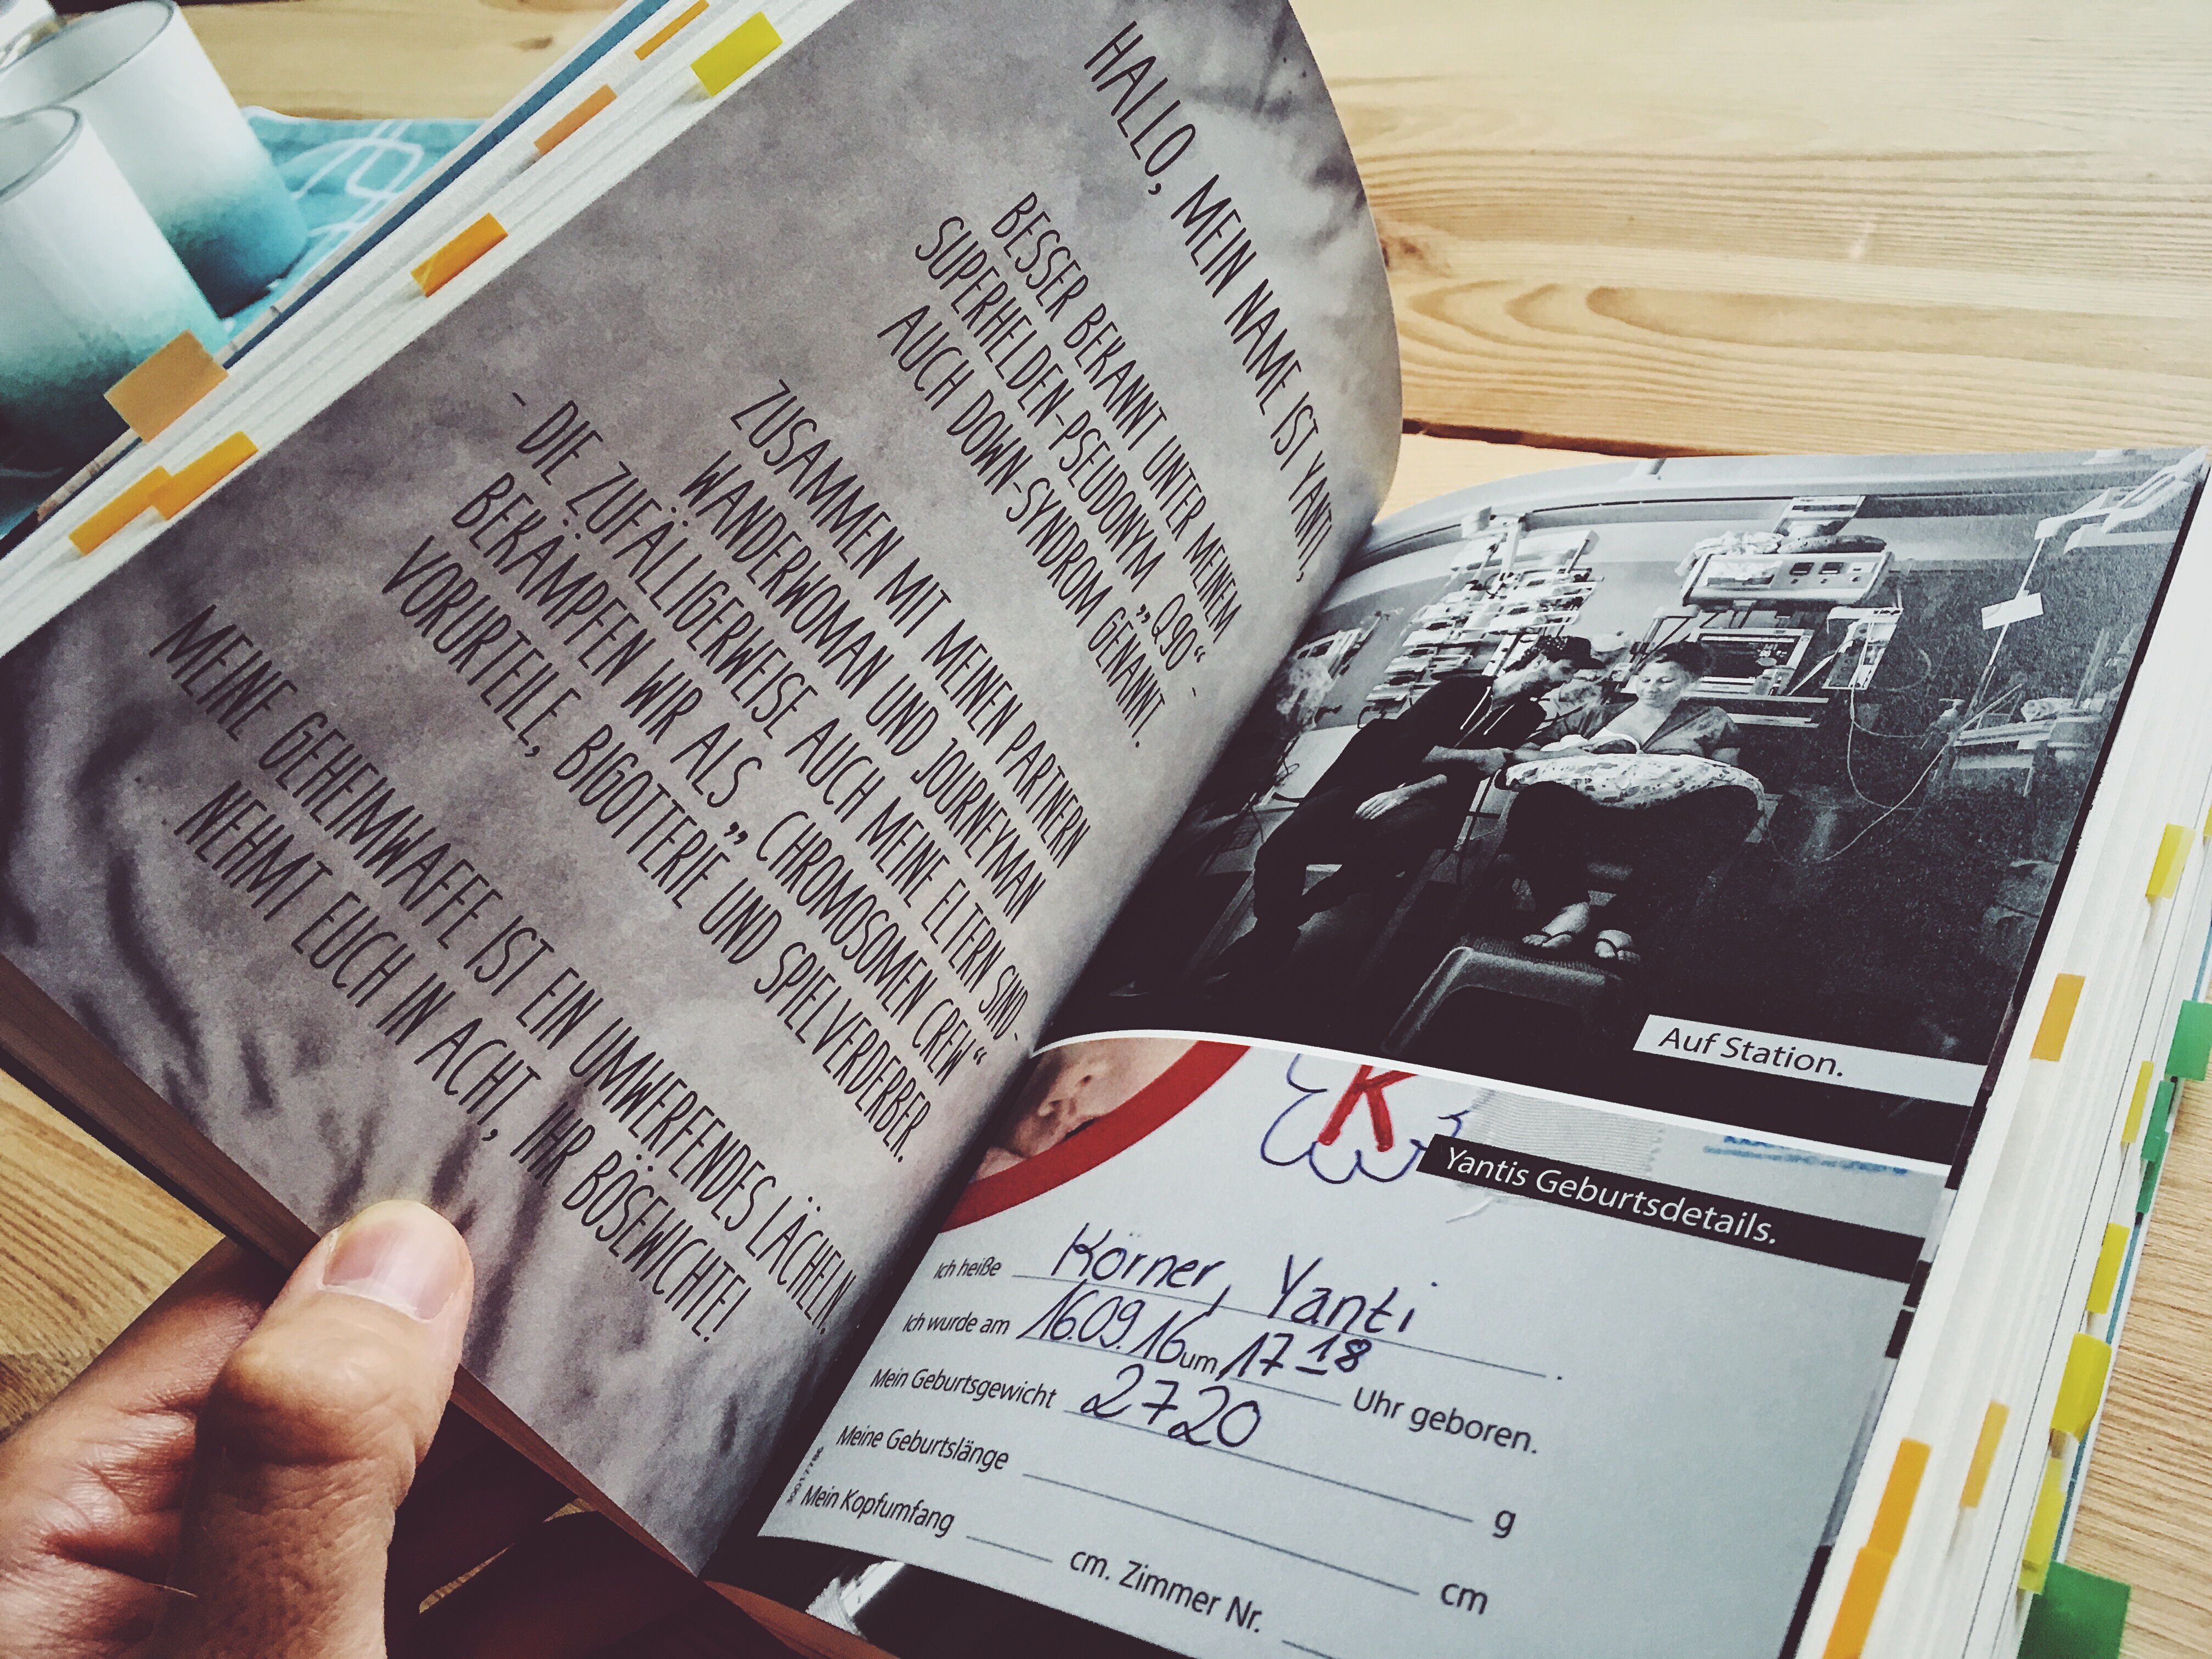 HALLO, MEIN NAME IST YANTI,
BESSER BEKANNT UNTER MEINEM
SUPERHELDEN-PSEUDONYM „Q90“ -
AUCH DOWN-SYNDROM GENANNT.
ZUSAMMEN MIT MEINEN PARTNERN
WANDERWOMAN UND JOURNEYMAN
- DIE ZUFÄLLIGERWEISE AUCH MEINE ELTERN SIND -
BEKÄMPFEN WIR ALS „CHROMOSOMEN CREW“
VORURTEILE, BIGOTTERIE UND SPIELVERDERBER.
MEINE GEHEIMWAFFE IST EIN UMWERFENDES LÄCHELN.
NEHMT EUCH IN ACHT, IHR BÖSEWICHTE!
Auf Station.
K
Yantis Geburtsdetails.
Ich heiße Körner, Yanti.
Ich wurde am 16.09.16 um 17 18 Uhr geboren.
Mein Geburtsgewicht 2720 g
Meine Geburtslänge cm
Mein Kopfumfang cm. Zimmer Nr.